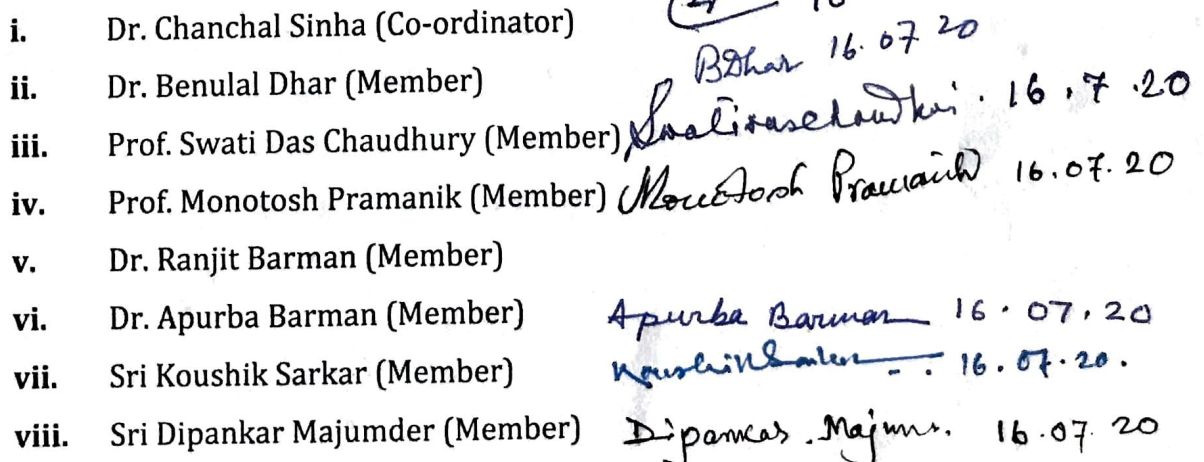 i. Dr. Chanchal Sinha (Co-ordinator)
ii. Dr. Benulal Dhar (Member) BDhar 16.07 20
iii. Prof. Swati Das Chaudhury (Member) 16.7.20
iv. Prof. Monotosh Pramanik (Member) Monotosh Pramanik 16.07.20
v. Dr. Ranjit Barman (Member)
vi. Dr. Apurba Barman (Member) Apurba Barman 16.07.20
vii. Sri Koushik Sarkar (Member) 16.07.20.
viii. Sri Dipankar Majumder (Member) 16.07.20